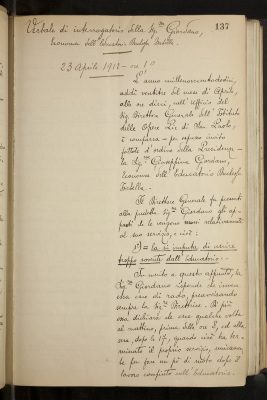 137
Verbale di interrogatorio della Sig.na Giordano,
Economa dell'Educatorio Duchessa Isabella.
23 Aprile 1912 - ore 10
L'anno millenovecentododici,
addì ventitre del mese di Aprile,
alle ore dieci, nell'ufficio del
Sig. Direttore Generale dell'Istituto
delle Opere Pie di San Paolo,
è comparsa - per espresso invito
fattole d'ordine della Presidenza -
la Sig.na Giuseppina Giordano,
Economa dell'Educatorio Duchessa
Isabella.
Il Direttore Generale fa presenti
alla predetta Sig.na Giordano gli ap-
punti che le vengono mossi relativamente
al suo servizio, e cioè:
1°) = la si imputa di uscire
troppo sovente dall'Educatorio. -
In merito a questo appunto, la
Sig.na Giordano risponde che
esce di rado, preavvisando
sempre la Sig.ra Direttrice. Di più
essa dichiara che esce qualche volta
al mattino, prima delle ore 8, ed alla
sera, dopo le 17, quando cioè ha ter-
minato il proprio servizio,
per far un po' di moto dopo il
lavoro compiuto nell'Educatorio.